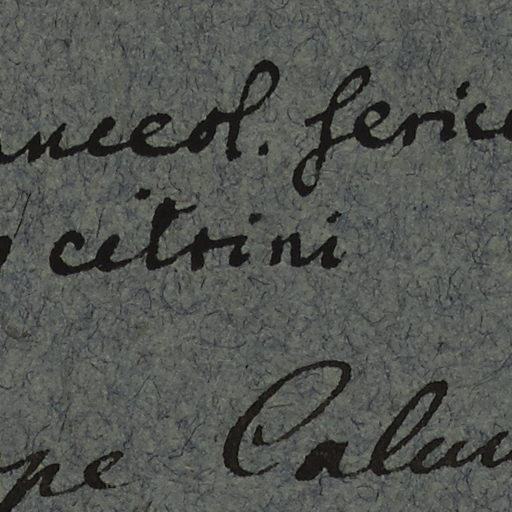 anceol. Seric
citrini
pe Calau